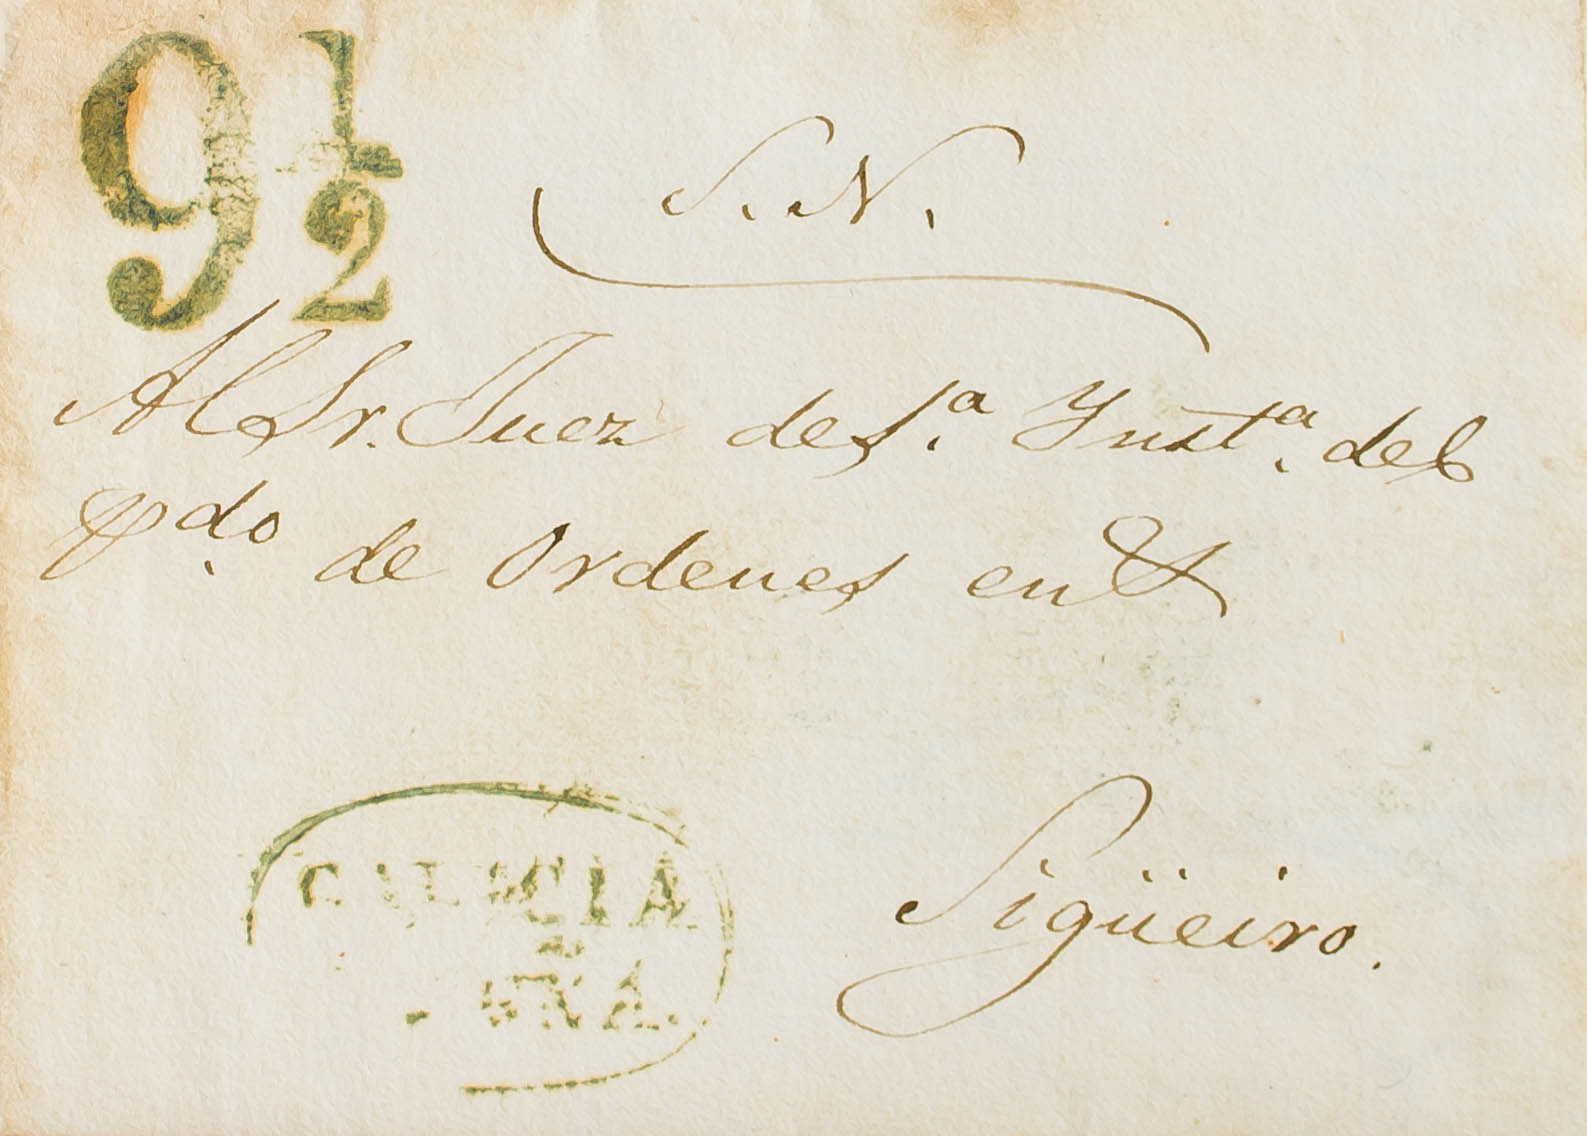 9 1/2
S. N.
Al Sr. Juez de 1.ª Ynst.ª del
p.do de Ordenes en
Sigüeiro.
GALICIA